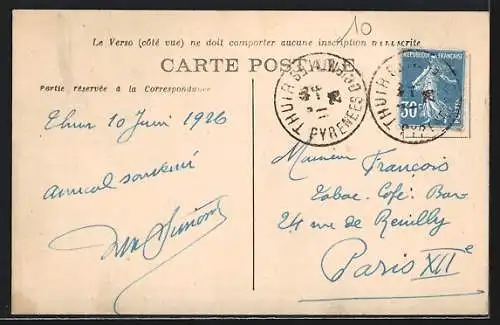 10
Le Verso (côté vue) ne doit comporter aucune inscription manuscrite
CARTE POSTALE
Partie réservée à la Correspondance
Thuir 10 Juin 1926
Amical souvenir
THUIR PYRÉNÉES ORIENTALES
THUIR
30
POSTES
Monsieur François
Tabac-Café-Bar
24 rue de Reuilly
Paris XIIe